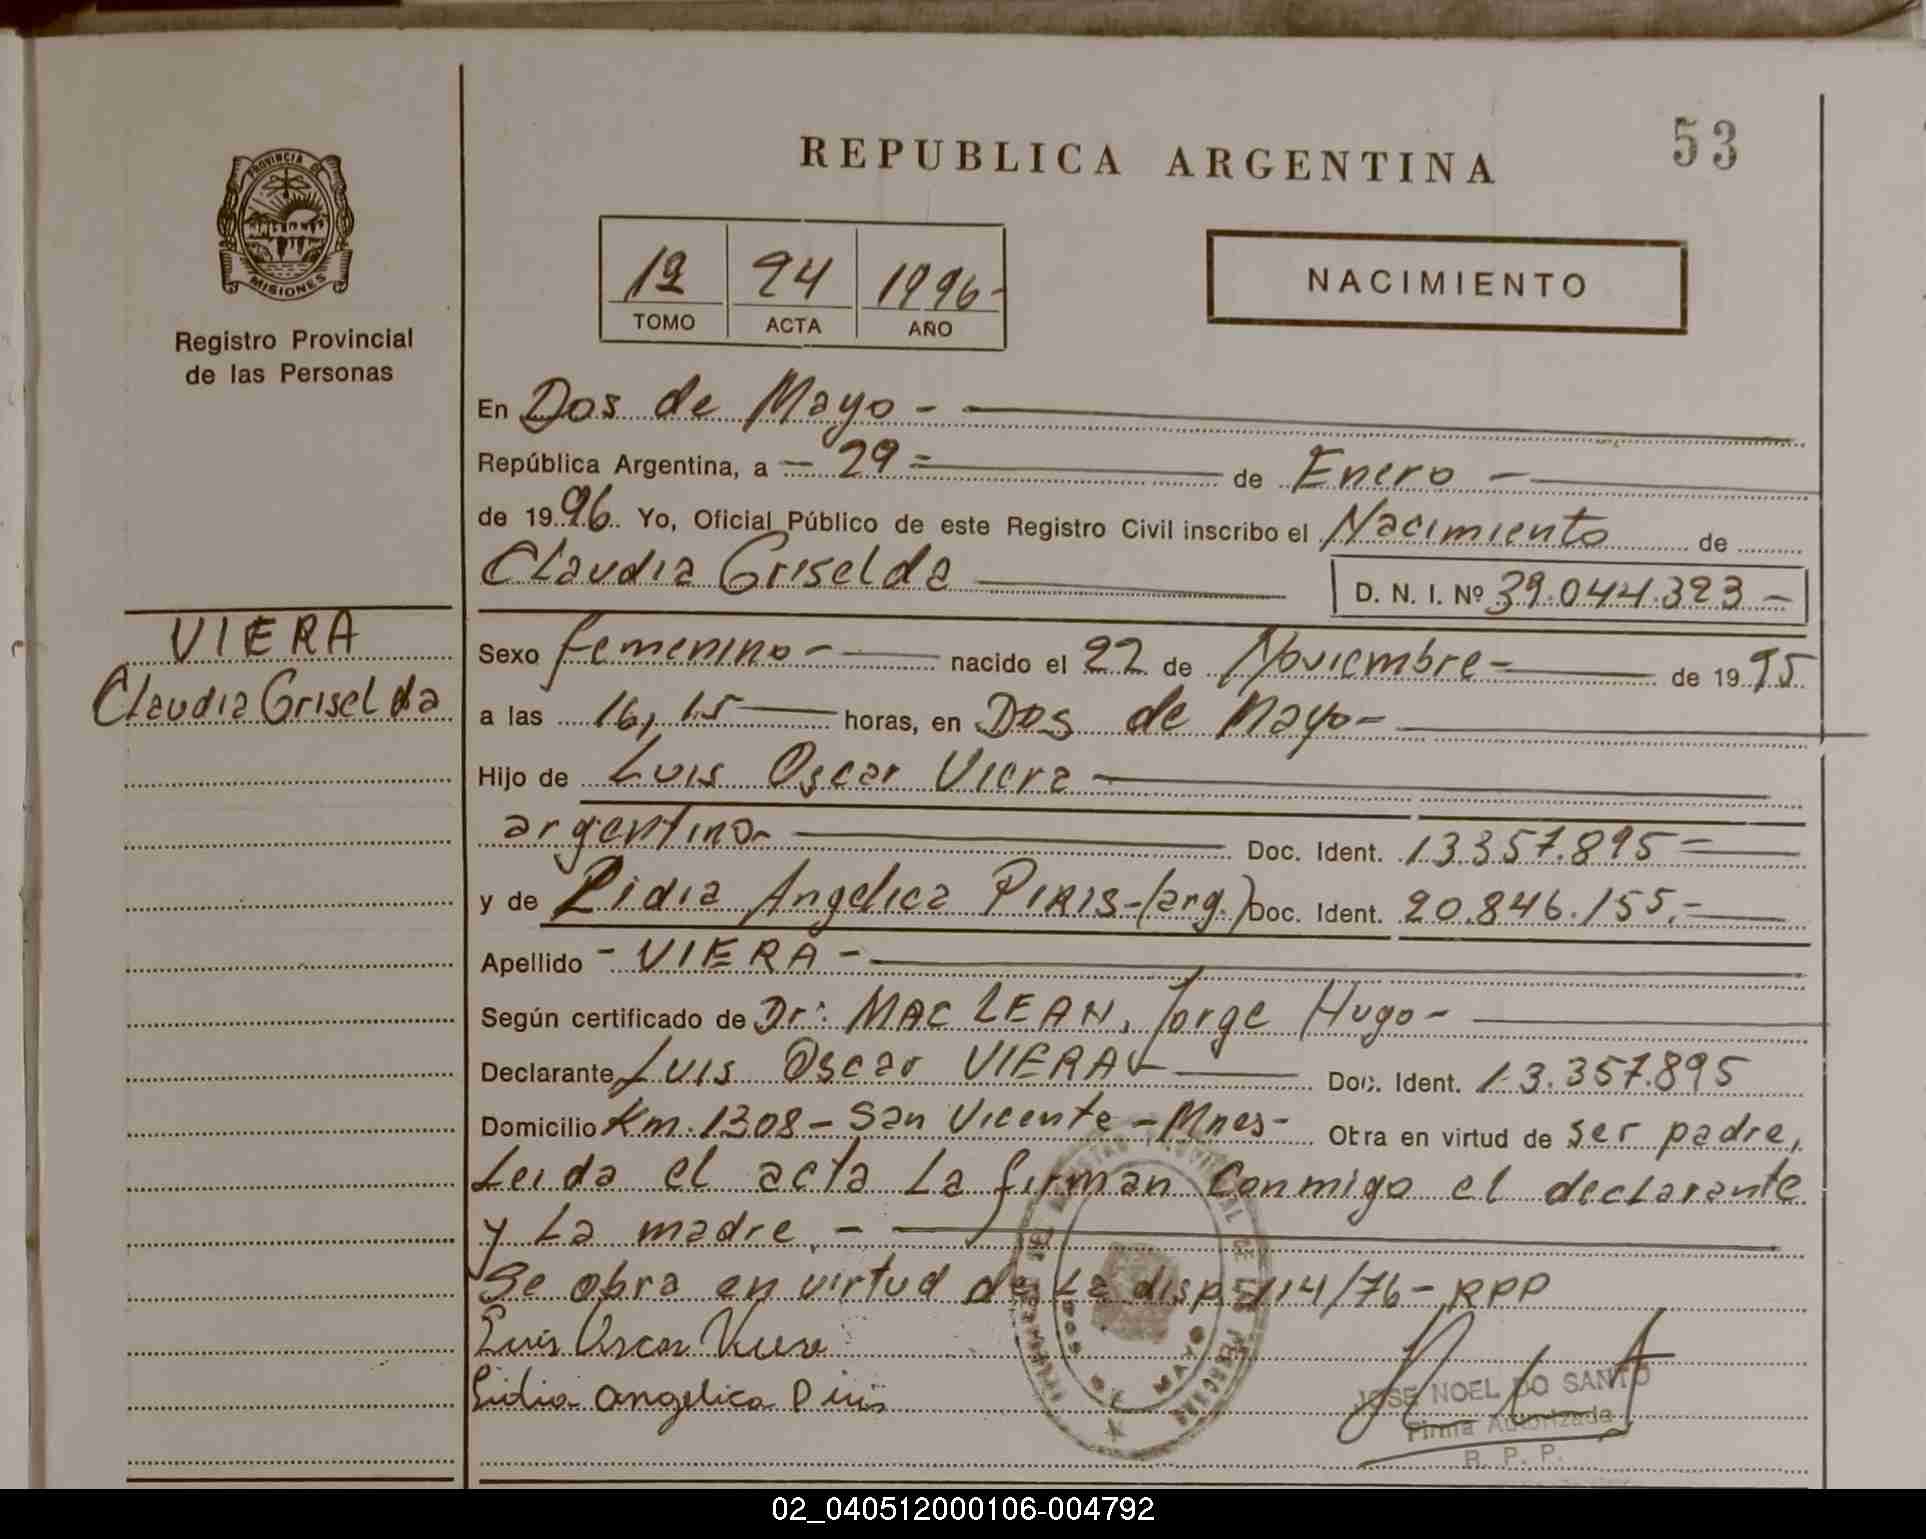 REPUBLICA ARGENTINA
53
PROVINCIA DE
MISIONES
Registro Provincial
de las Personas
12 94 1996-
TOMO ACTA AÑO
NACIMIENTO
En Dos de Mayo -
República Argentina, a - 29 = de Enero -
de 1996. Yo, Oficial Público de este Registro Civil inscribo el Nacimiento de
Claudia Griselda
D. N. I. Nº 39.044.323 -
VIERA
Claudia Griselda
Sexo femenino - nacido el 22 de Noviembre - de 1995
a las 16,15 horas, en Dos de Mayo -
Hijo de Luis Oscar Viera
argentino - Doc. Ident. 13.357.895 -
y de Lidia Angelica PIRIS - (arg.) Doc. Ident. 20.846.155.-
Apellido - VIERA -
Según certificado de Dr: MAC LEAN, Jorge Hugo -
Declarante Luis Oscar VIERA Doc. Ident. 13.357.895
Domicilio Km. 1308 - San Vicente - Mnes - Obra en virtud de ser padre,
Leida el acta La firman conmigo el declarante
y La madre. -
Se obra en virtud de La disp. 114/76 - RPP
Luis Oscar Viera
Lidia Angelica Piris
DOS DE MAYO
JOSE NOEL DO SANTO
Firma Autorizada
R. P. P.
02_040512000106-004792